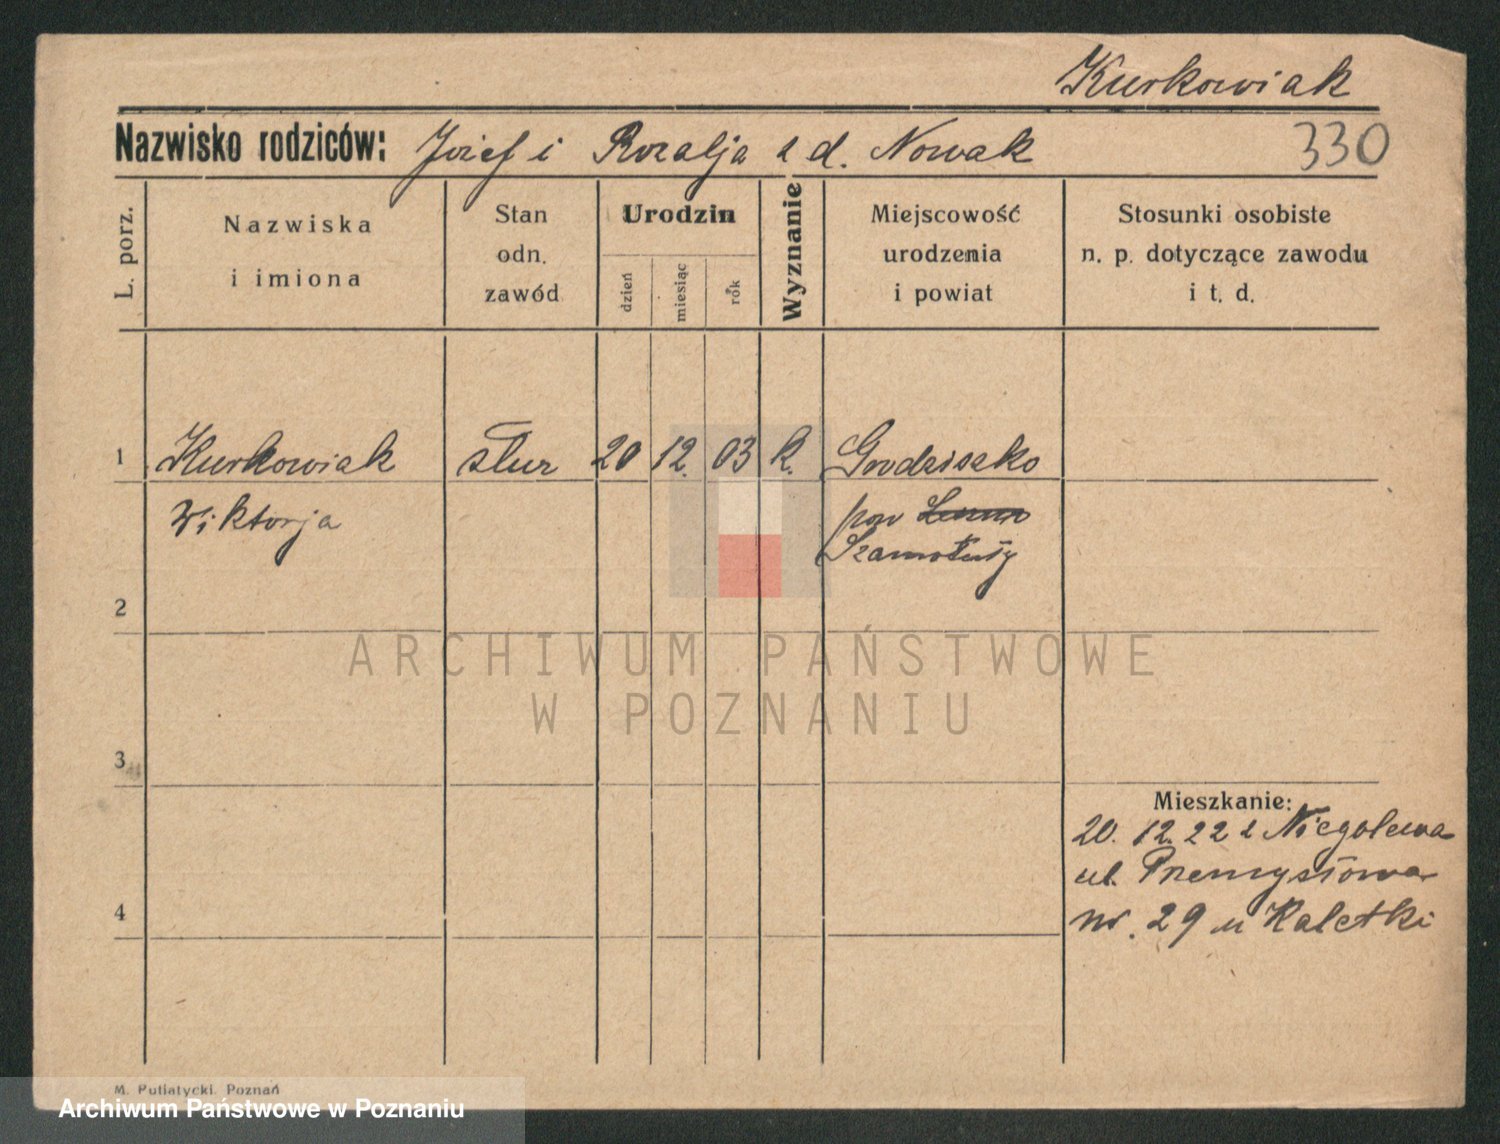 Kurkowiak
Nazwisko rodziców: Józef i Rozalja z d. Nowak 330
L. porz.
Nazwiska
i imiona
Stan
odn.
zawód
Urodzin
dzień
miesiąc
rok
Wyznanie
Miejscowość
urodzenia
i powiat
Stosunki osobiste
n. p. dotyczące zawodu
i t. d.
1 Kurkowiak służ 20 12. 03 k. Grodziszko
Wiktorja
pow
Szamotuły
2
3
4
Mieszkanie:
20. 12. 22 z Niegolewa
ul. Przemysłowa
nr. 29 u Kaletki
ARCHIWUM PAŃSTWOWE
W POZNANIU
M. Putiatycki. Poznań
Archiwum Państwowe w Poznaniu